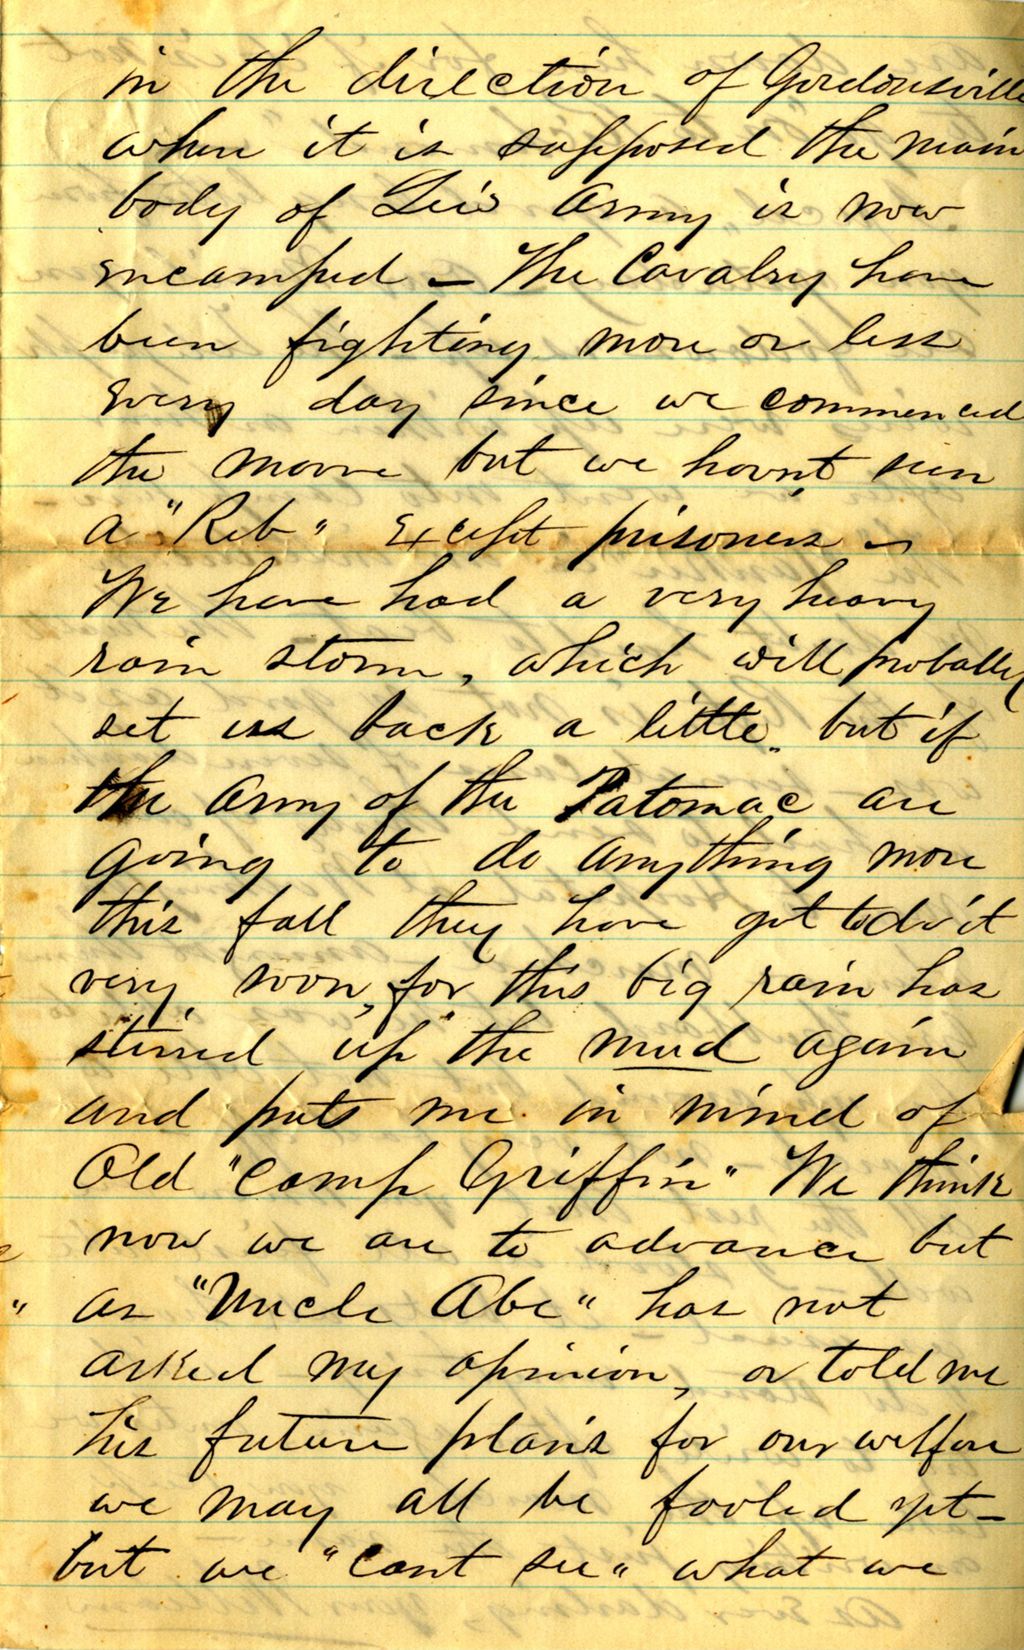 in the direction of Gordonsville
where it is supposed the main
body of Lee's Army is now
encamped – The Cavalry have
been fighting more or less
every day since we commenced
the move but we havn't seen
a "Reb" except prisoners –
We have had a very heavy
rain storm, which will probably
set us back a little, but if
the Army of the Patomac are
going to do anything more
this fall they have got to do it
very soon, for this big rain has
stirred up the mud again
and puts me in mind of
Old "Camp Griffin" We think
now we are to advance but
as "Uncle Abe" has not
asked my opinion, or told me
his future plans for our welfare
we may all be fooled yet –
but we "cant see" what we